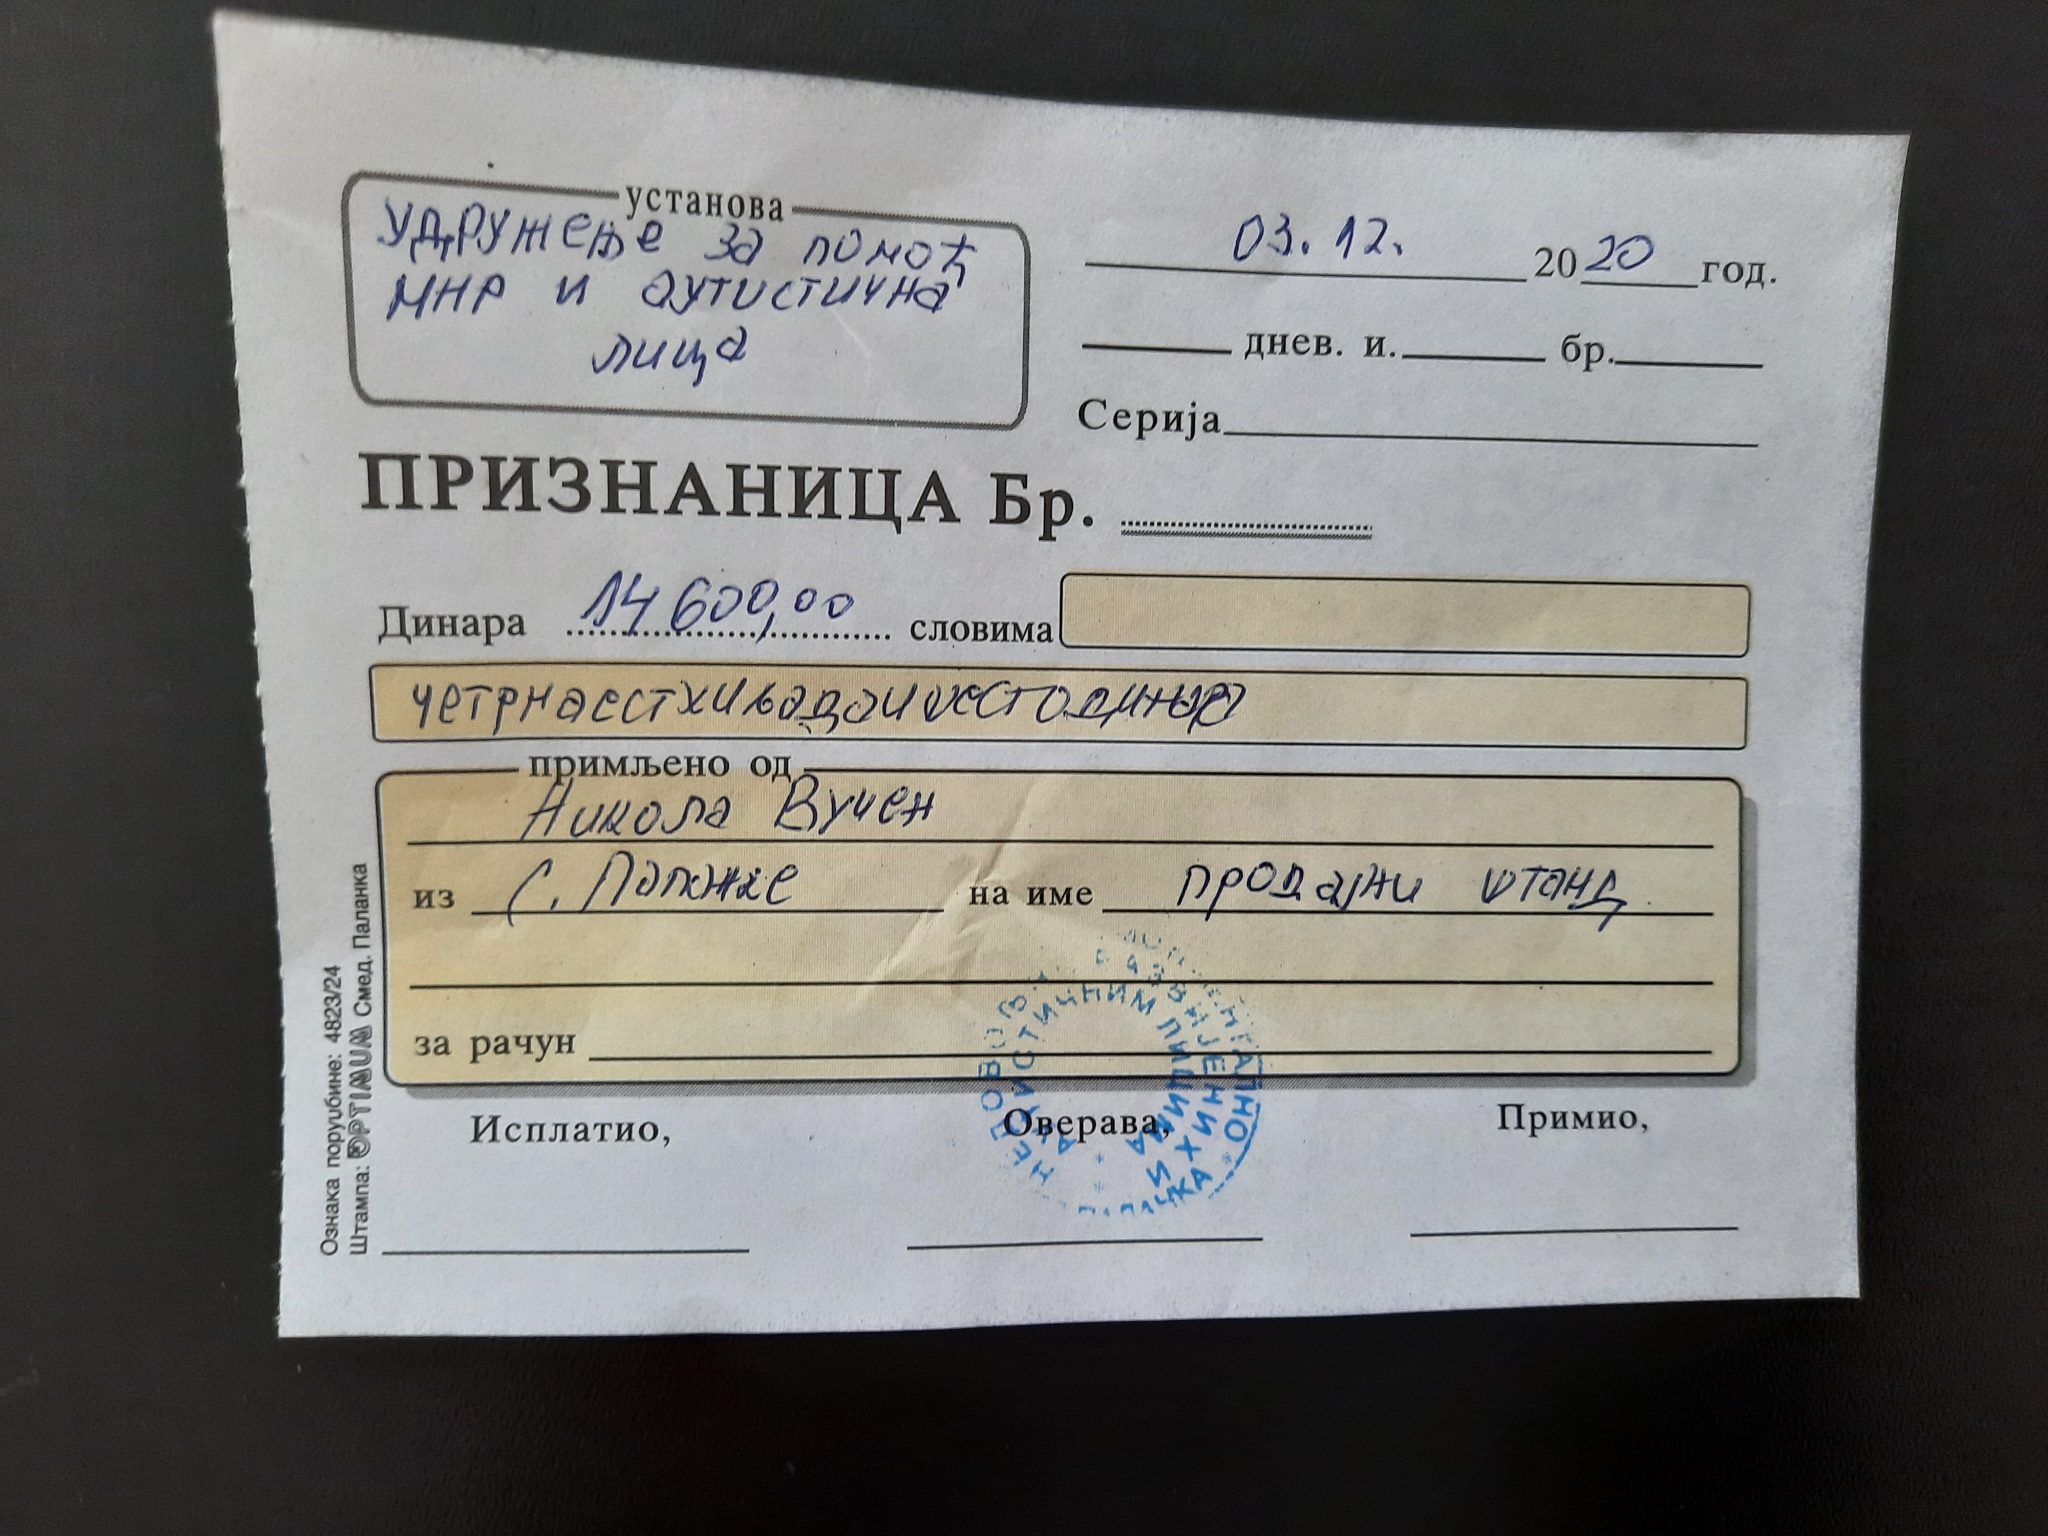 установа
Удружење за помоћ
МНР и аутистична
лица
03. 12. 2020 год.
днев. и. бр.
Серија
ПРИЗНАНИЦА Бр.
Динара 14 600,00 словима
четрнаестхиљадаишестодинара
примљено од
Никола Вучен
из С. Паланке на име продајни штанд
за рачун
Исплатио, Оверава, Примио,
НЕДОВОЉ РАЗВИЈЕНИХ И
АУТИСТИЧНИМ ЛИЦИМА
Ознака поруџбине: 4823/24
Штампа: OPTIMUM Смед. Паланка